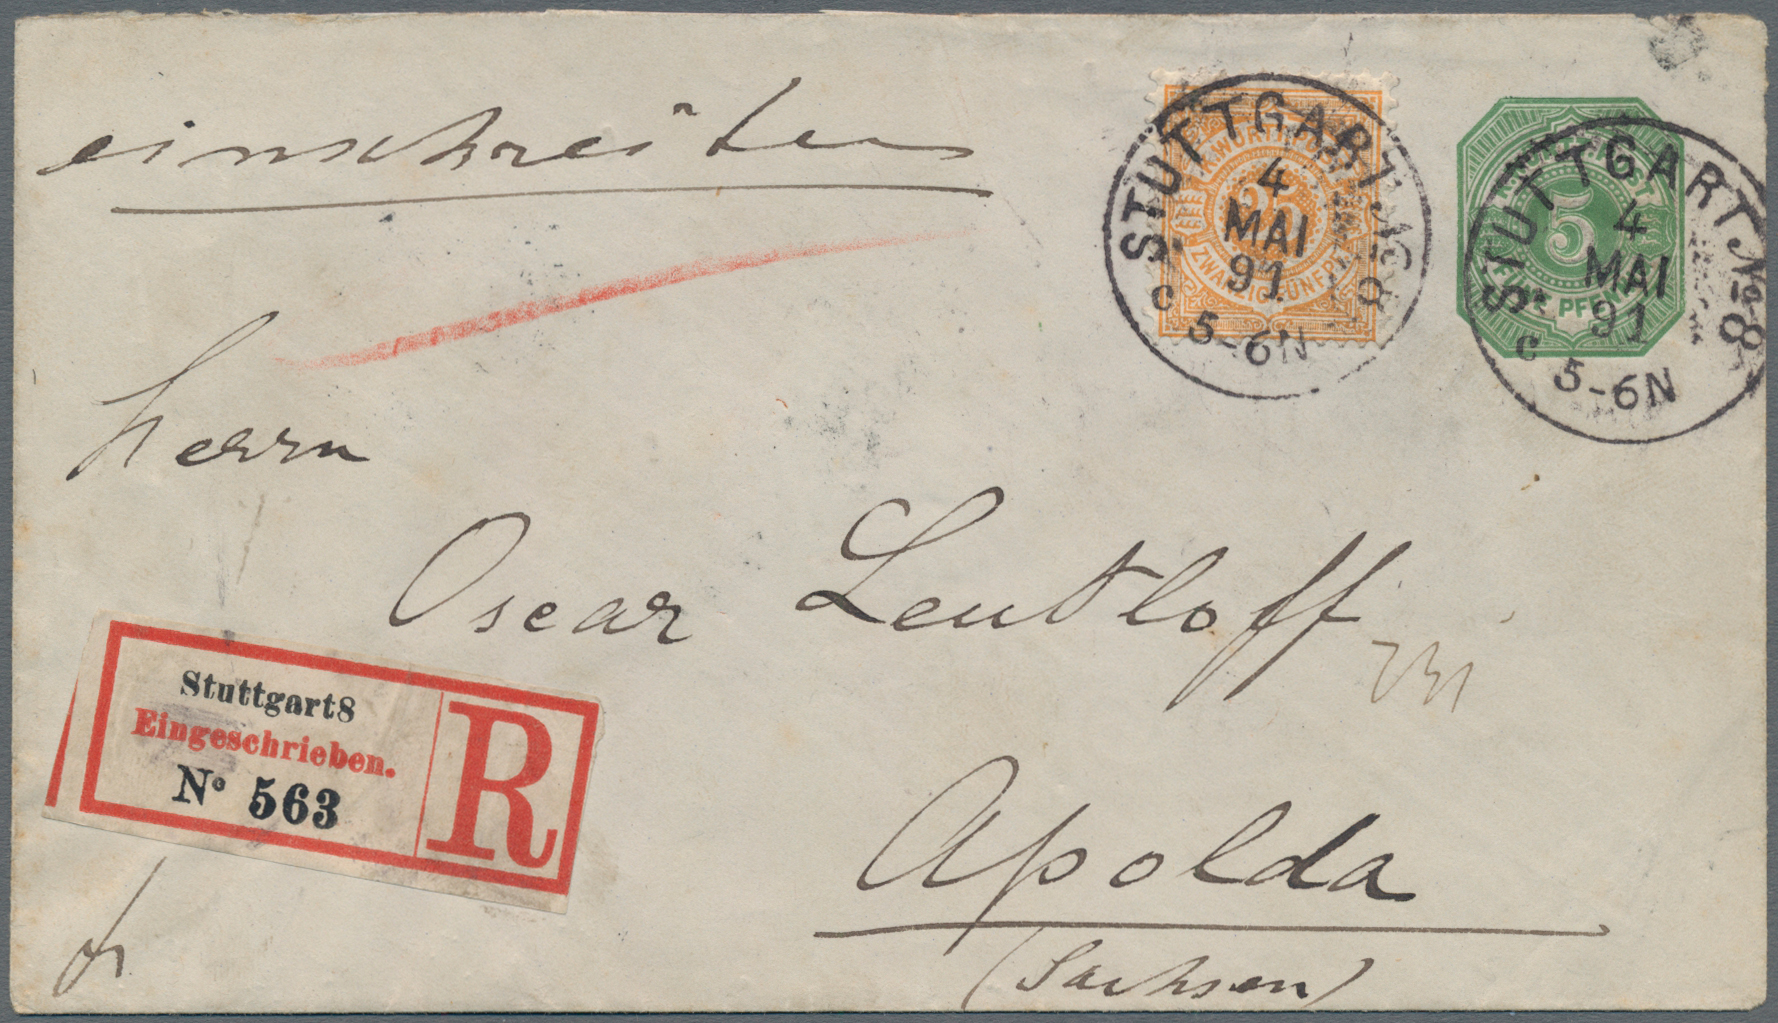 einschreiben
STUTTGART No 8
4
MAI
91
c 5-6N
K. WÜRTT. POST
25
ZWANZIG FÜNF PF.
STUTTGART No 8
4
MAI
91
c 5-6N
5
PFENNIG
Herrn
Oscar Leutloff
Apolda
(Sachsen)
Stuttgart 8
Eingeschrieben.
No 563
R
fr